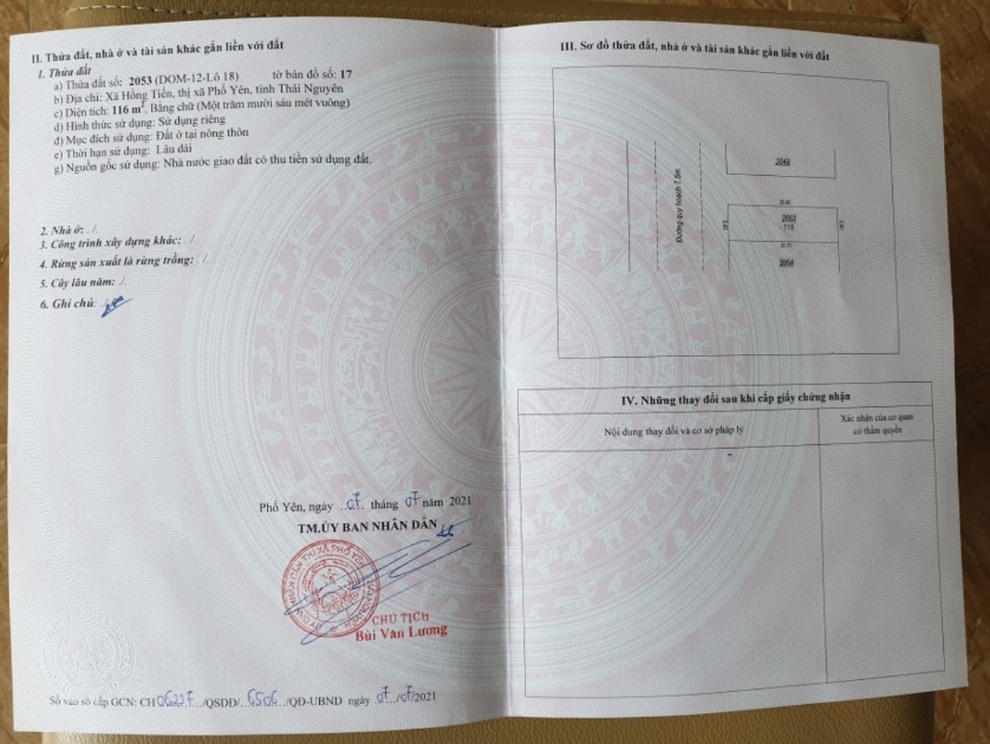 II. Thửa đất, nhà ở và tài sản khác gắn liền với đất
1. Thửa đất
a) Thửa đất số: 2053 (DOM-12-Lô 18) tờ bản đồ số: 17
b) Địa chỉ: Xã Hồng Tiến, thị xã Phổ Yên, tỉnh Thái Nguyên
c) Diện tích: 116 m², Bằng chữ (Một trăm mười sáu mét vuông)
d) Hình thức sử dụng: Sử dụng riêng
đ) Mục đích sử dụng: Đất ở tại nông thôn
e) Thời hạn sử dụng: Lâu dài
g) Nguồn gốc sử dụng: Nhà nước giao đất có thu tiền sử dụng đất.
2. Nhà ở: ./.
3. Công trình xây dựng khác: ./.
4. Rừng sản xuất là rừng trồng: ./.
5. Cây lâu năm: ./.
6. Ghi chú:
Phổ Yên, ngày 07 tháng 07 năm 2021
TM.ỦY BAN NHÂN DÂN
CHỦ TỊCH
Bùi Văn Lương
Số vào sổ cấp GCN: CH06227/QSDĐ/6506/QĐ-UBND ngày 07/07/2021
III. Sơ đồ thửa đất, nhà ở và tài sản khác gắn liền với đất
Đường quy hoạch 7,5m
2053
116
2054
IV. Những thay đổi sau khi cấp giấy chứng nhận
Nội dung thay đổi và cơ sở pháp lý
Xác nhận của cơ quan
có thẩm quyền